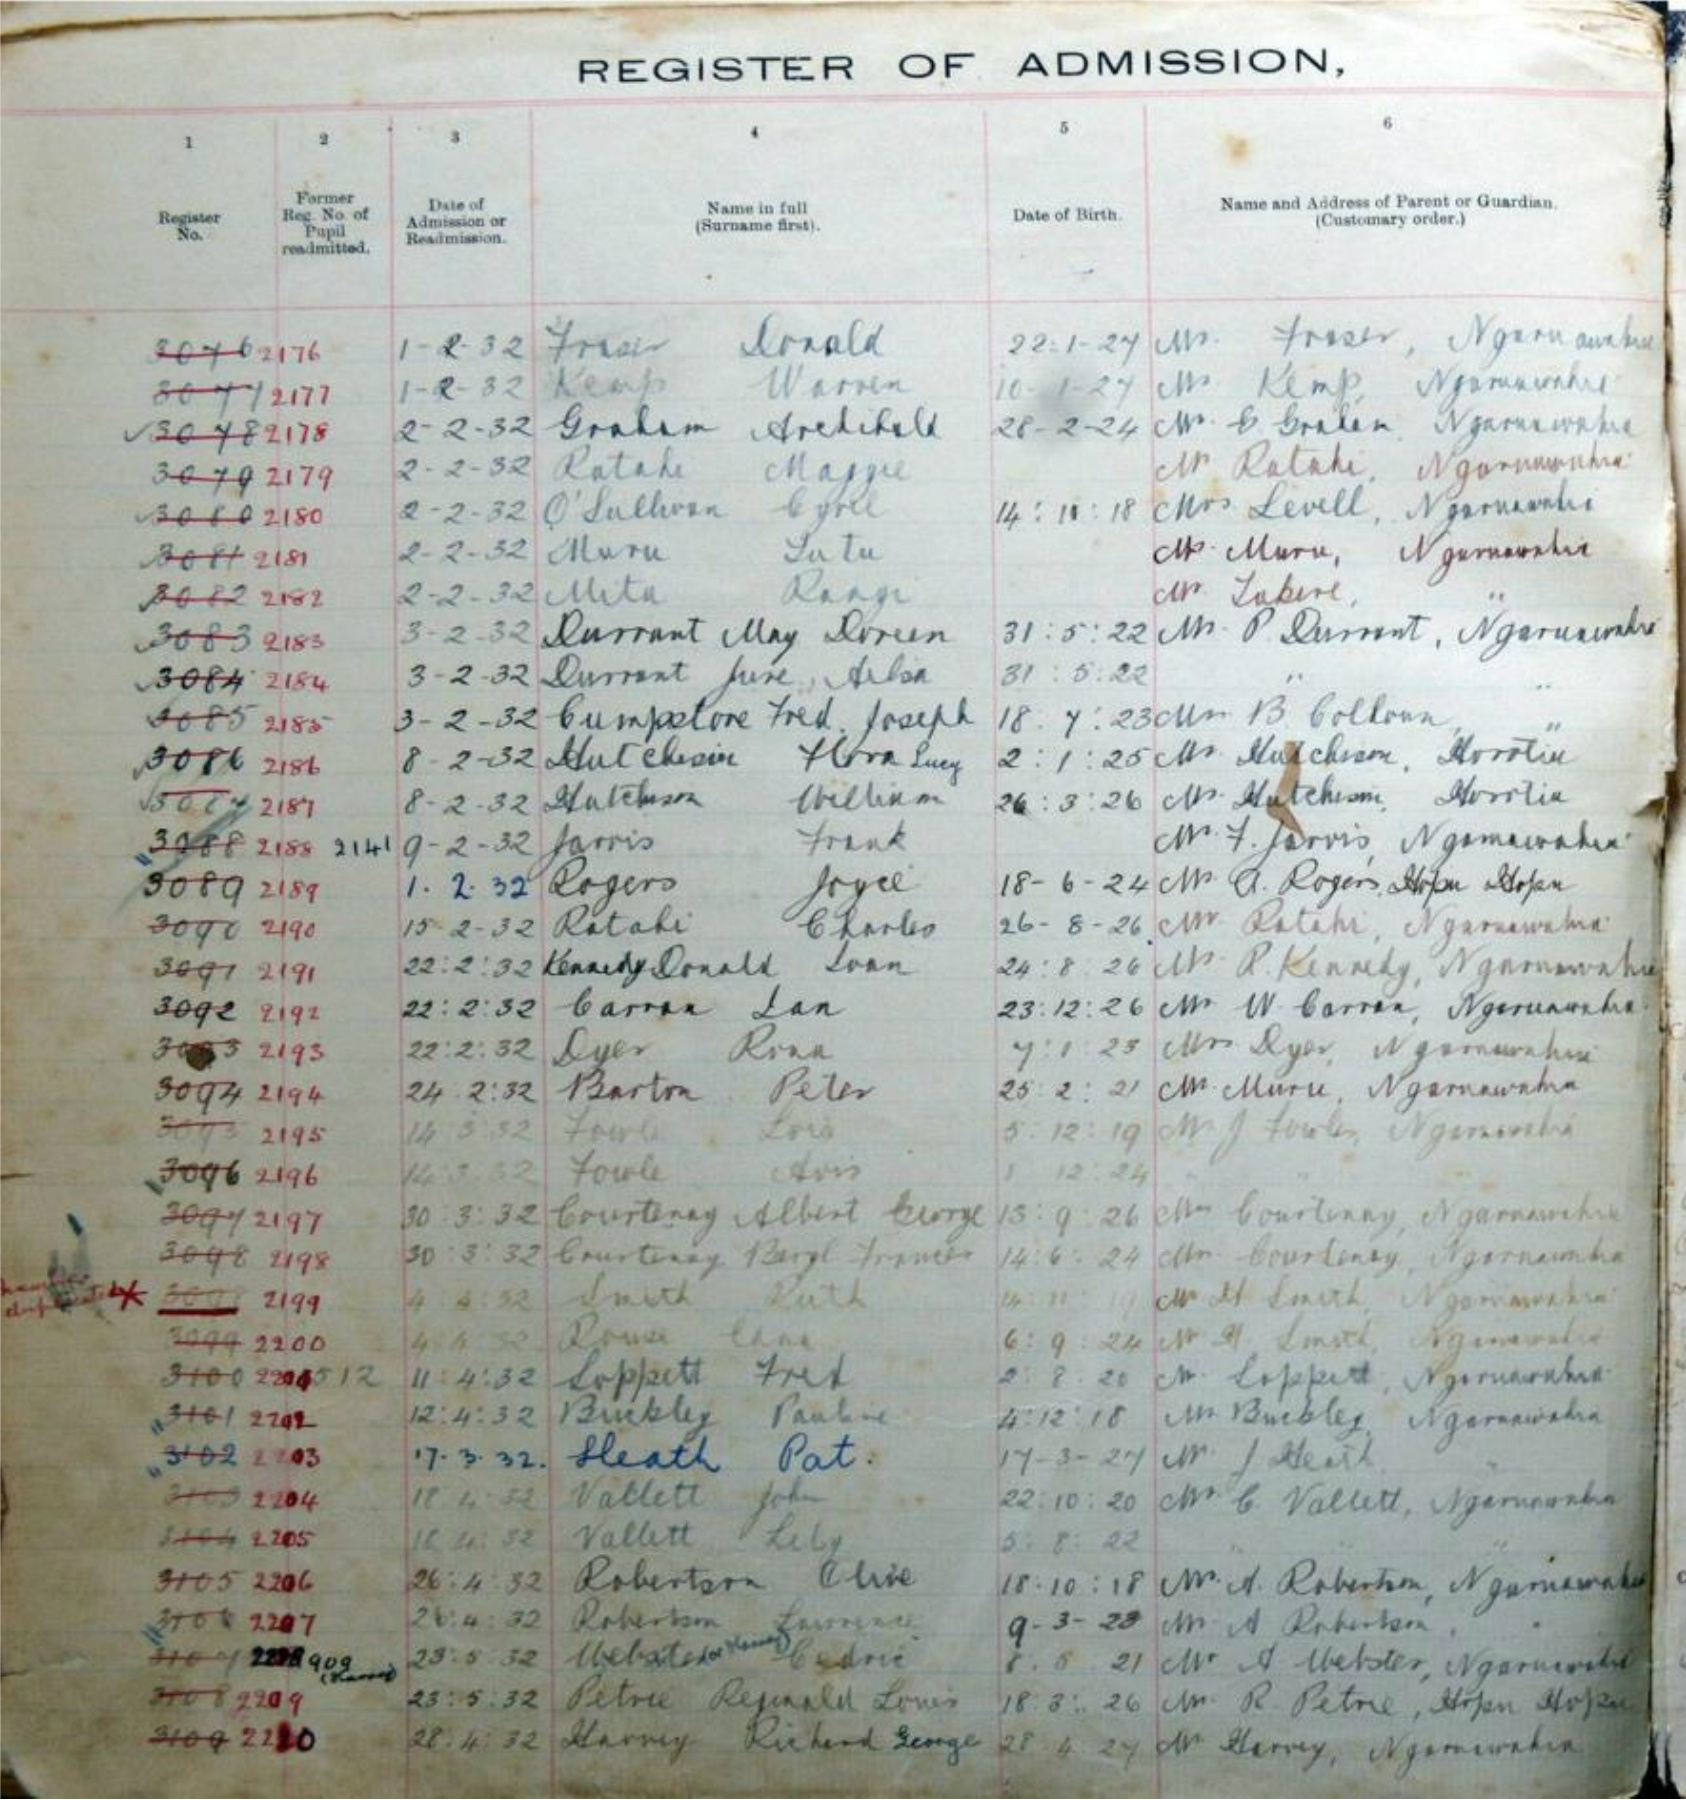 REGISTER OF ADMISSION,
1 2 3 4 5 6
Register No. Former Reg. No. of Pupil readmitted. Date of Admission or Readmission. Name in full (Surname first). Date of Birth. Name and Address of Parent or Guardian. (Customary order.)
3076 2176 1-2-32 Fraser Donald 22:1-27 Mr. Fraser, Ngaruawahia
3077 2177 1-2-32 Kemp Warren 10-1-27 Mr. Kemp, Ngaruawahia
3078 2178 2-2-32 Graham Archibald 28-2-24 Mr. Graham Ngaruawahia
3079 2179 2-2-32 Ratahi Maggie Mr Ratahi, Ngaruawahia
3080 2180 2-2-32 O'Sullivan Cyril 14:10:18 Mrs Levell, Ngaruawahia
3081 2181 2-2-32 Muru Tutu Mr. Muru, Ngaruawahia
3082 2182 2-2-32 Mita Rangi Mr. Takere, "
3083 2183 3-2-32 Durrant May Doreen 31:5:22 Mr. P. Durrant, Ngaruawahia
3084 2184 3-2-32 Durrant June Ailsa 31:5:22 " "
3085 2185 3-2-32 Cumpstone Fred. Joseph 18.7:23 B. Colhoun "
3086 2186 8-2-32 Hutchison Flora Lucy 2:1:25 Mr. Hutchison, Horotiu
3087 2187 8-2-32 Hutchison William 26:3:26 Mr. Hutchison, Horotiu
3088 2188 2141 9-2-32 Jarvis Frank Mr. F. Jarvis, Ngaruawahia
3089 2189 1.2.32 Rogers Joyce 18-6-24 Mr A. Rogers, Hopu Hopu
3090 2190 15-2-32 Ratahi Charles 26-8-26 Mr. Ratahi, Ngaruawahia
3091 2191 22:2:32 Kennedy Donald Ivan 24:8 26 Mr. R. Kennedy, Ngaruawahia
3092 2192 22:2:32 Carran Ian 23:12:26 Mr W. Carran, Ngaruawahia
3093 2193 22:2:32 Dyer Rona 7:1:25 Mrs Dyer, Ngaruawahia
3094 2194 24.2:32 Barton Peter 25:2:21 Mr. Muru, Ngaruawahia
2195 14 3:32 Fowle Lois 5:12:19 Mr J Fowle, Ngaruawahia
3096 2196 14:3:32 Fowle Avis 1 12:24
3097 2197 30:3:32 Courtenay Albert George 13:9:26 Courtenay, Ngaruawahia
3098 2198 30:3:32 Courtenay Beryl Frances 14:6:24 Courtenay, Ngaruawahia
2199 4 4:32 Smith Ruth Mr H Smith, Ngaruawahia
3099 2200 4:4:32 Rouse 6:9:24 Mr H. Smith, Ngaruawahia
3100 2201 512 11:4:32 Loppett Fred 2:8.20 Mr. Loppett, Ngaruawahia
3101 2202 12:4:32 Buckley Pauline 4:12:18 Mr Buckley, Ngaruawahia
3102 2203 17.3.32. Heath Pat. 17-3-27 Mr. J Heath "
3103 2204 18.4:32 Vallett John 22:10:20 Mr C. Vallett, Ngaruawahia
3104 2205 18.4:32 Vallett Lily 5:8:22 " "
3105 2206 26:4:32 Robertson Clive 18:10:18 Mr. A. Robertson, Ngaruawahia
3106 2207 26:4:32 Robertson Lawrence 9-3-23 Mr A Robertson, "
3107 2208 909 (Harvey) 23:5:32 Webster (or Harvey) Cedric 8.5 21 Mr A Webster, Ngaruawahia
3108 2209 23:5:32 Petrie Reginald Louis 18:3:26 Mr. R. Petrie, Hopu Hopu
3109 2210 28.4:32 Harvey Richard George 28 4.27 Mr Harvey, Ngaruawahia